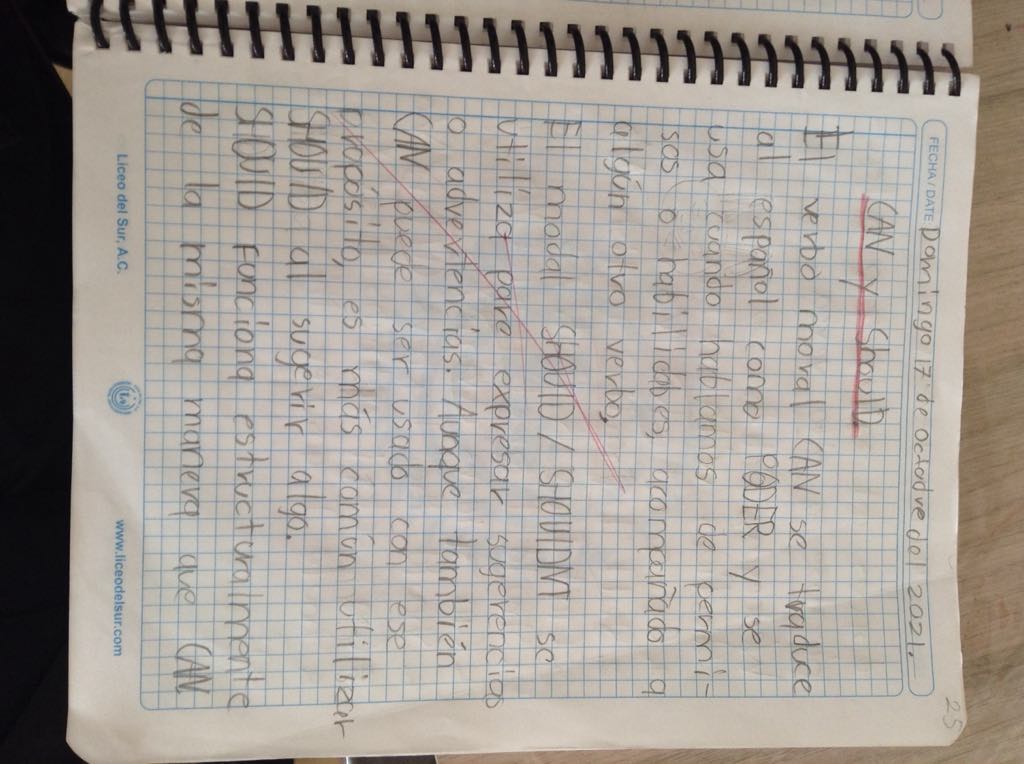 25
FECHA/DATE Domingo 17 de octodre del 2021.
CAN y ShoulD
El verbo moral CAN se traduce
al español como PODER y se
usa cuando hablamos de permi-
sos o habillidades, acompañado a
algún otro verbo,
El modal SHOULD / SHOULDNT se
utiliza para expresar sugerencias
o advertencias. Aunque también
CAN puece ser usado con ese
propósito, es más común utillizar
SHOULD al sugerir algo.
SHOULD Funciona estructuralmente
de la misma manera que CAN
Liceo del Sur, A.C.
www.liceodelsur.com